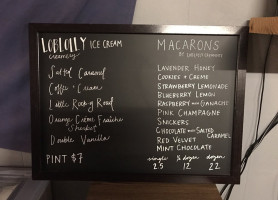 LOBLOLLY ICE CREAM
creamery
Salted Caramel
Coffee + Cream
Little Rock-y Road
Orange Crème Fraîche
Sherbet
Double Vanilla
PINT $7
MACARONS
BY LOBLOLLY CREAMERY
LAVENDER HONEY
COOKIES + CREME
STRAWBERRY LEMONADE
BLUEBERRY LEMON
RASPBERRY with GANACHE
PINK CHAMPAGNE
SNICKERS
CHOCOLATE with SALTED
CARAMEL
RED VELVET
MINT CHOCOLATE
single ½ dozen dozen
2.5 12 22